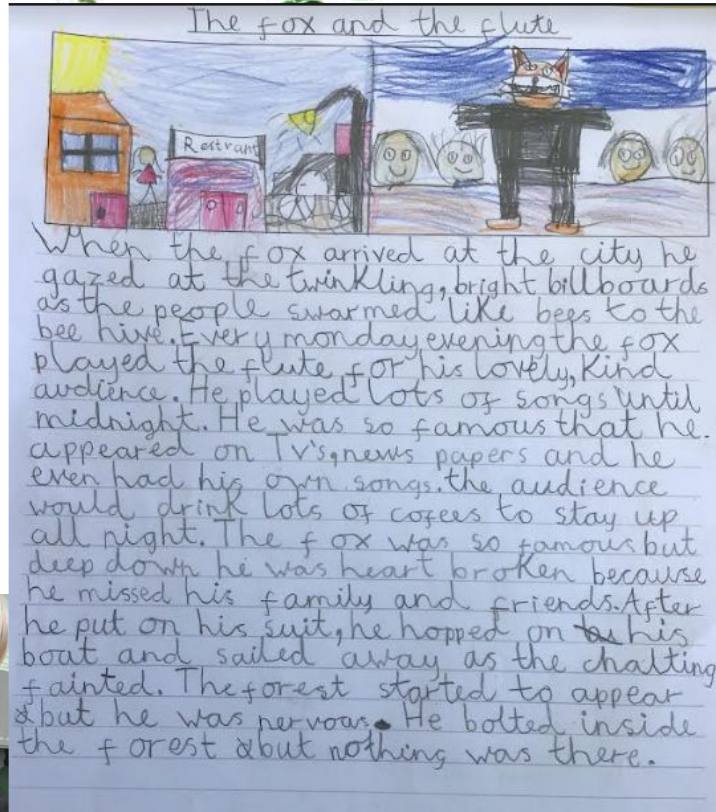 The fox and the flute
Restrant
When the fox arrived at the city he
gazed at the twinkling, bright billboards
as the people swarmed like bees to the
bee hive. Every monday evening the fox
played the flute for his lovely, kind
audience. He played lots of songs until
midnight. He was so famous that he.
appeared on Tv's, news papers and he
even had his own songs. the audience
would drink lots of cofees to stay up
all night. The fox was so famous but
deep down he was heart broken because
he missed his family and friends. After
he put on his suit, he hopped on his
boat and sailed away as the chalting
fainted. The forest started to appear
but he was nervous. He bolted inside
the forest but nothing was there.